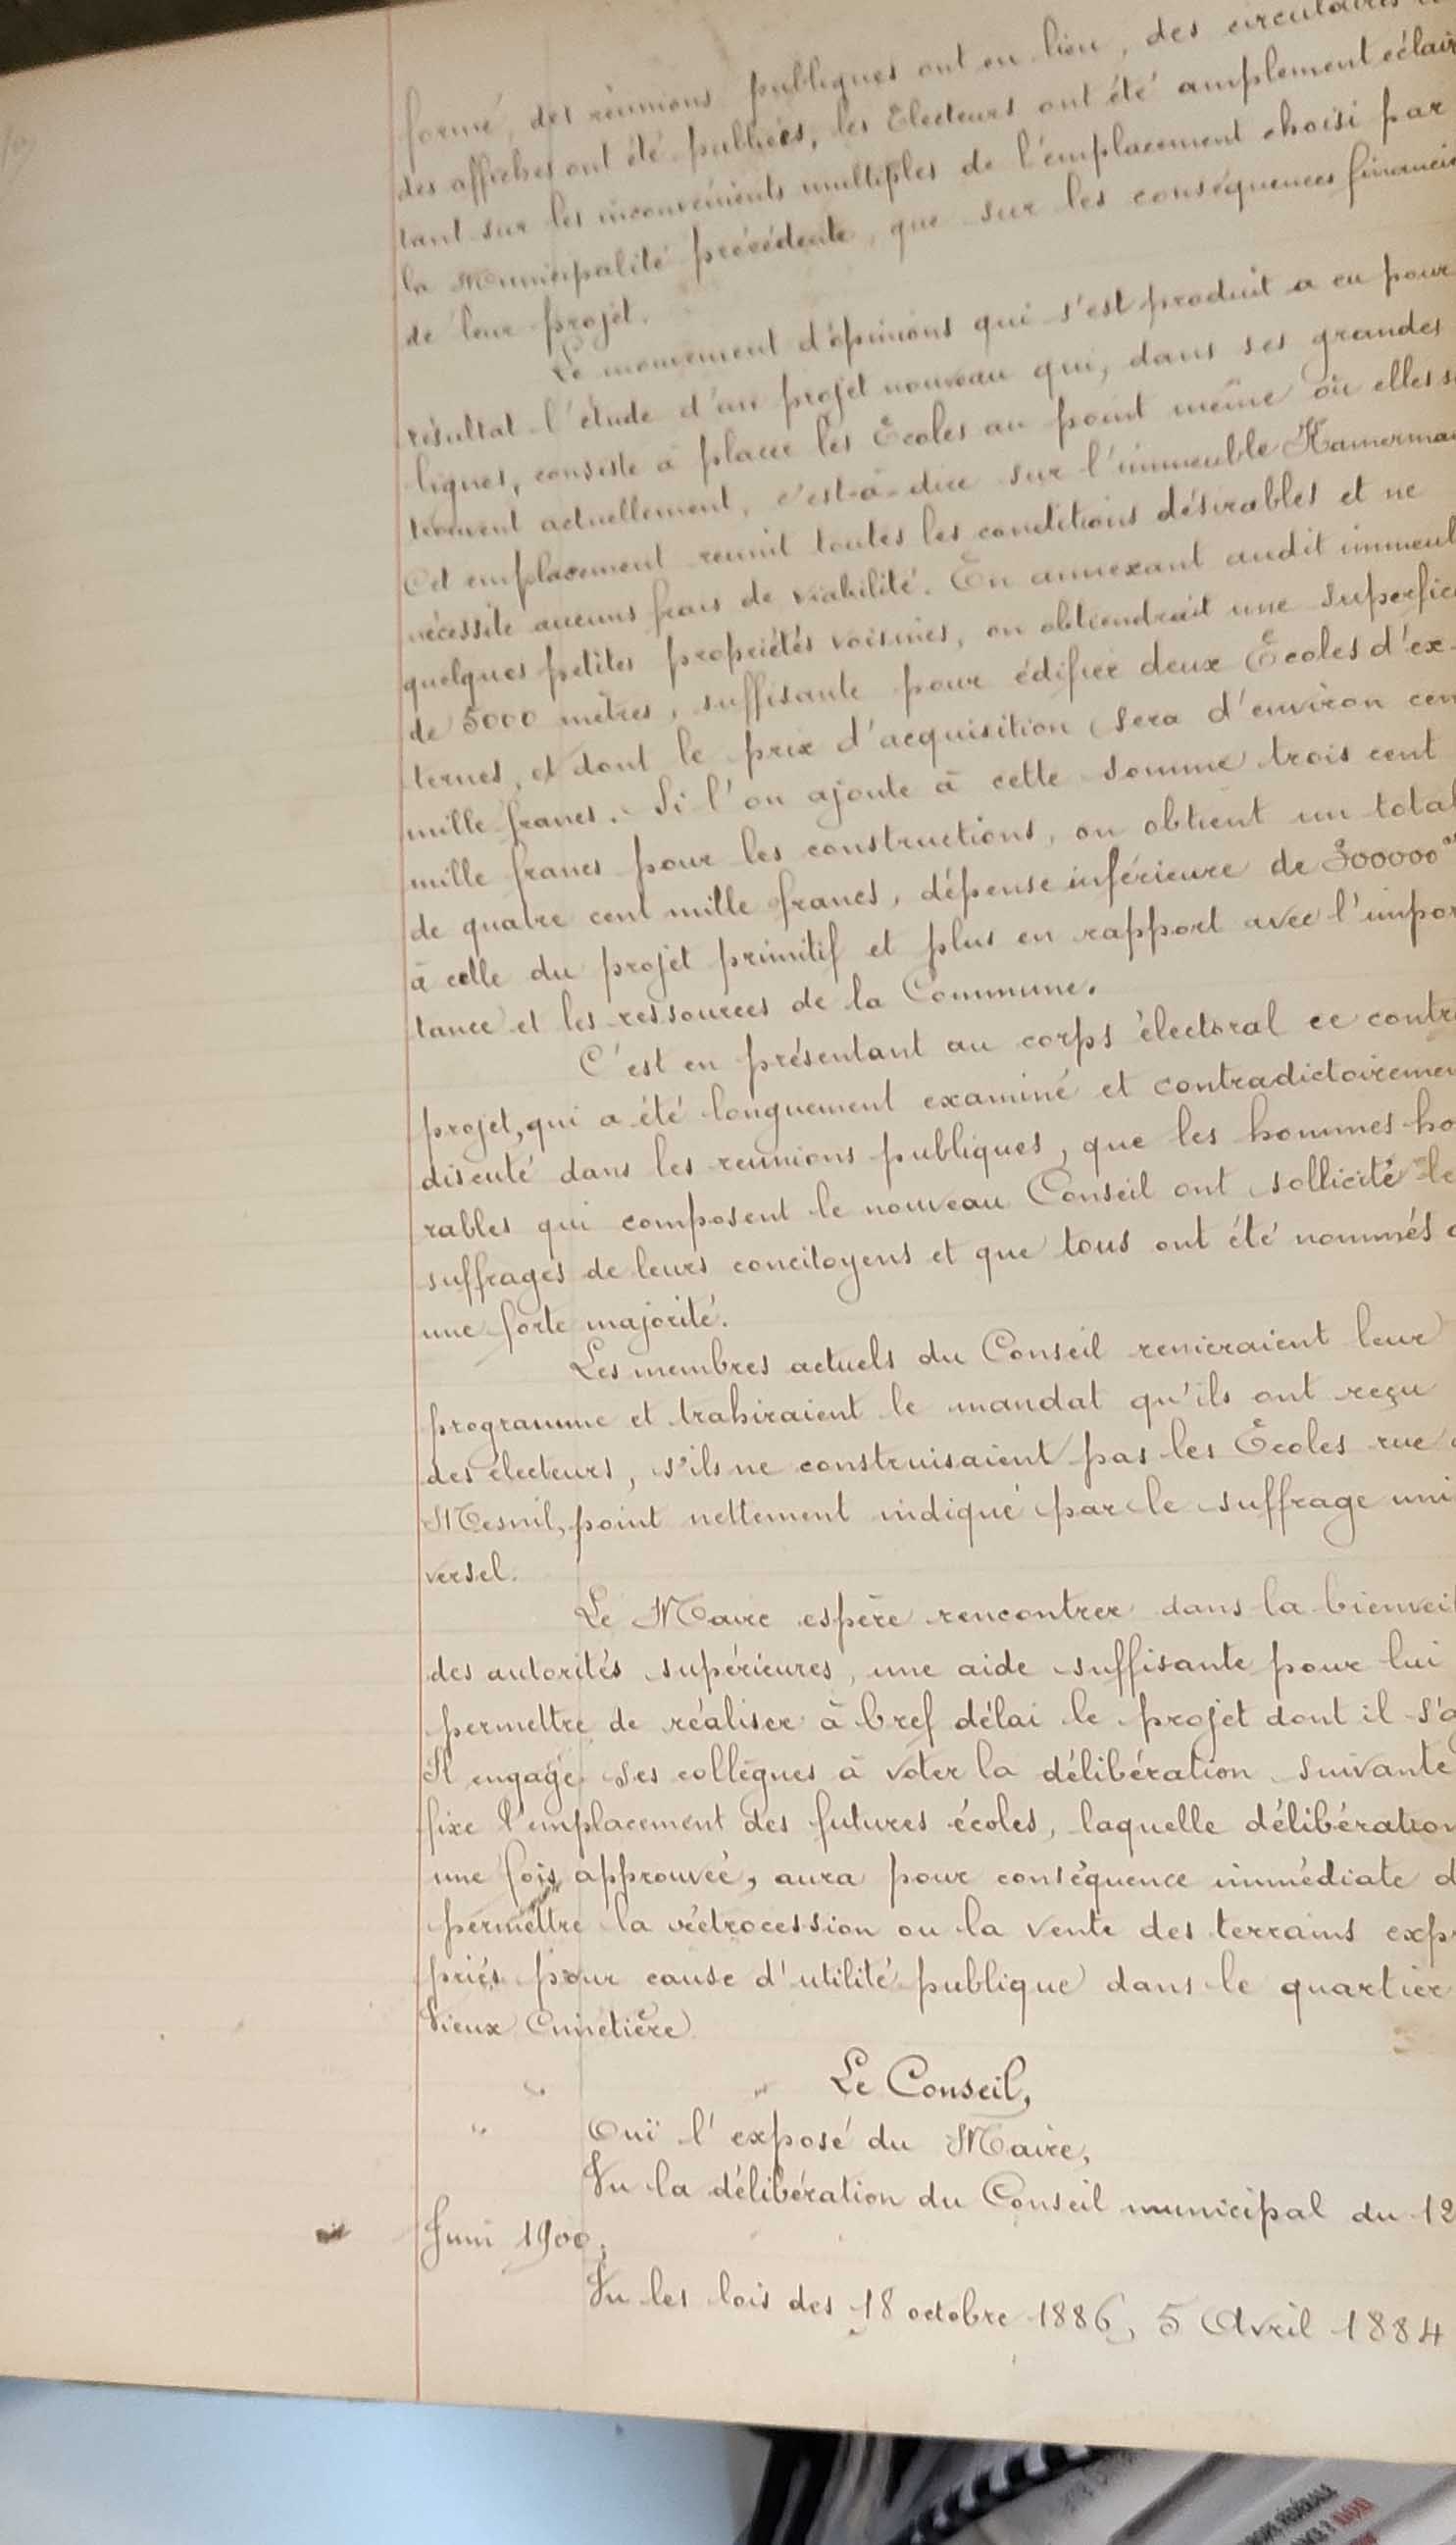 formé, des réunions publiques ont eu lieu, des circulaires
des affiches ont été publiées, les Electeurs ont été amplement éclair
tant sur les inconvénients multiples de l'emplacement choisi par
la Municipalité précédente, que sur les conséquences financiè
de leur projet.
Le mouvement d'opinions qui s'est produit a eu pour
résultat l'étude d'un projet nouveau qui, dans ses grandes
lignes, consiste à placer les Ecoles au point même où elles s
trouvent actuellement, c'est-à-dire sur l'immeuble Kamerman
Cet emplacement reunit toutes les conditions désirables et ne
nécessite aucuns frais de viabilité. En annexant audit immeub
quelques petites propriétés voisines, on obtiendrait une superfici
de 5000 mètres, suffisante pour édifier deux Ecoles d'ex-
ternes, et dont le prix d'acquisition sera d'environ cen
mille francs. Si l'on ajoute à cette somme trois cent
mille francs pour les constructions, on obtient un total
de quatre cent mille francs, dépense inférieure de 300000
à celle du projet primitif et plus en rapport avec l'impor
tance et les ressources de la Commune.
C'est en présentant au corps électoral ce contre
projet, qui a été longuement examiné et contradictoiremen
discuté dans les reunions publiques, que les hommes ho
rables qui composent le nouveau Conseil ont sollicité le
suffrages de leurs concitoyens et que tous ont été nommés
une forte majorité.
Les membres actuels du Conseil renieraient leur
programme et trahiraient le mandat qu'ils ont reçu
des électeurs, s'ils ne construisaient pas les Ecoles rue
Mesnil, point nettement indiqué par le suffrage uni
versel.
Le Maire espère rencontrer dans la bienveil
des autorités supérieures, une aide suffisante pour lui
permettre de réaliser à bref délai le projet dont il s'a
Il engage ses collègues à voter la délibération suivante
fixe l'emplacement des futures écoles, laquelle délibération
une fois approuvée, aura pour conséquence immédiate d
permettre la rétrocession ou la vente des terrains exp
priés pour cause d'utilité publique dans le quartier
Vieux Cimetière
" " Le Conseil,
" Ouï l'exposé du Maire,
Vu la délibération du Conseil municipal du 12
Juin 1900;
Vu les lois des 18 octobre 1886, 5 Avril 1884